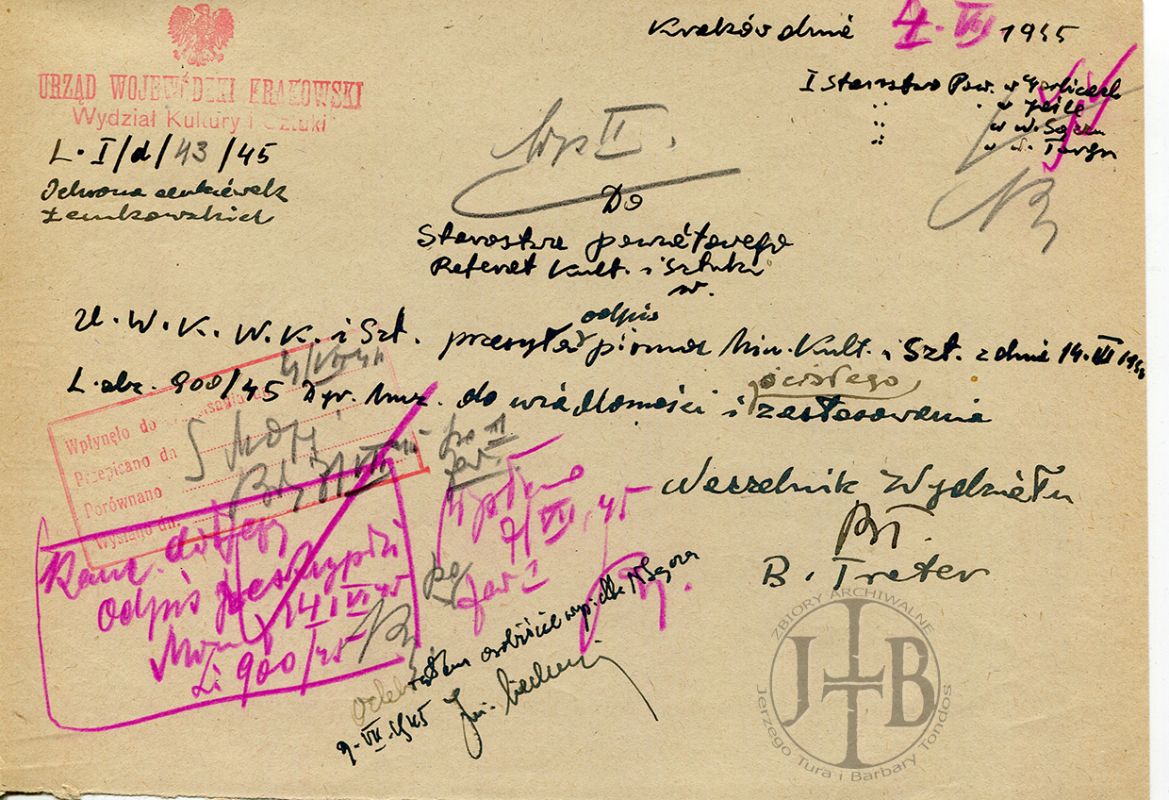 Kraków dnia 4. VII 1945
URZĄD WOJEWÓDZKI KRAKOWSKI
Wydział Kultury i Sztuki
L. I/d/43/45
Ochrona cerkiewek
Łemkowskich
I Starostwo Pow. w Gorlicach
" w Jaśle
" w N. Sączu
" w N. Targu
Wyp II.
Do
Starostwa powiatowego
Referat Kult. i Sztuki
w.
U. W. K. W. K. i Szt. przesyła odpis pisma Min. Kult. i Szt. z dnia 14. VI 1945
L. abz. 900/45 Dyr. Muz. do wiadomości i ścisłego zastosowania
Wpłynęło do
Przepisano dn.
Porównano
Wysłano dn.
Naczelnik Wydziału
B. Treter
Kanc. dołączy
odpis
14. VI 45
L. 900/45
Wysłano
7/VII 45
Odebrałem osobiście wyp. dla N. Sącza
9. VII. 1945
ZBIORY ARCHIWALNE
JTTB
Jerzego Tura i Barbary Tondos